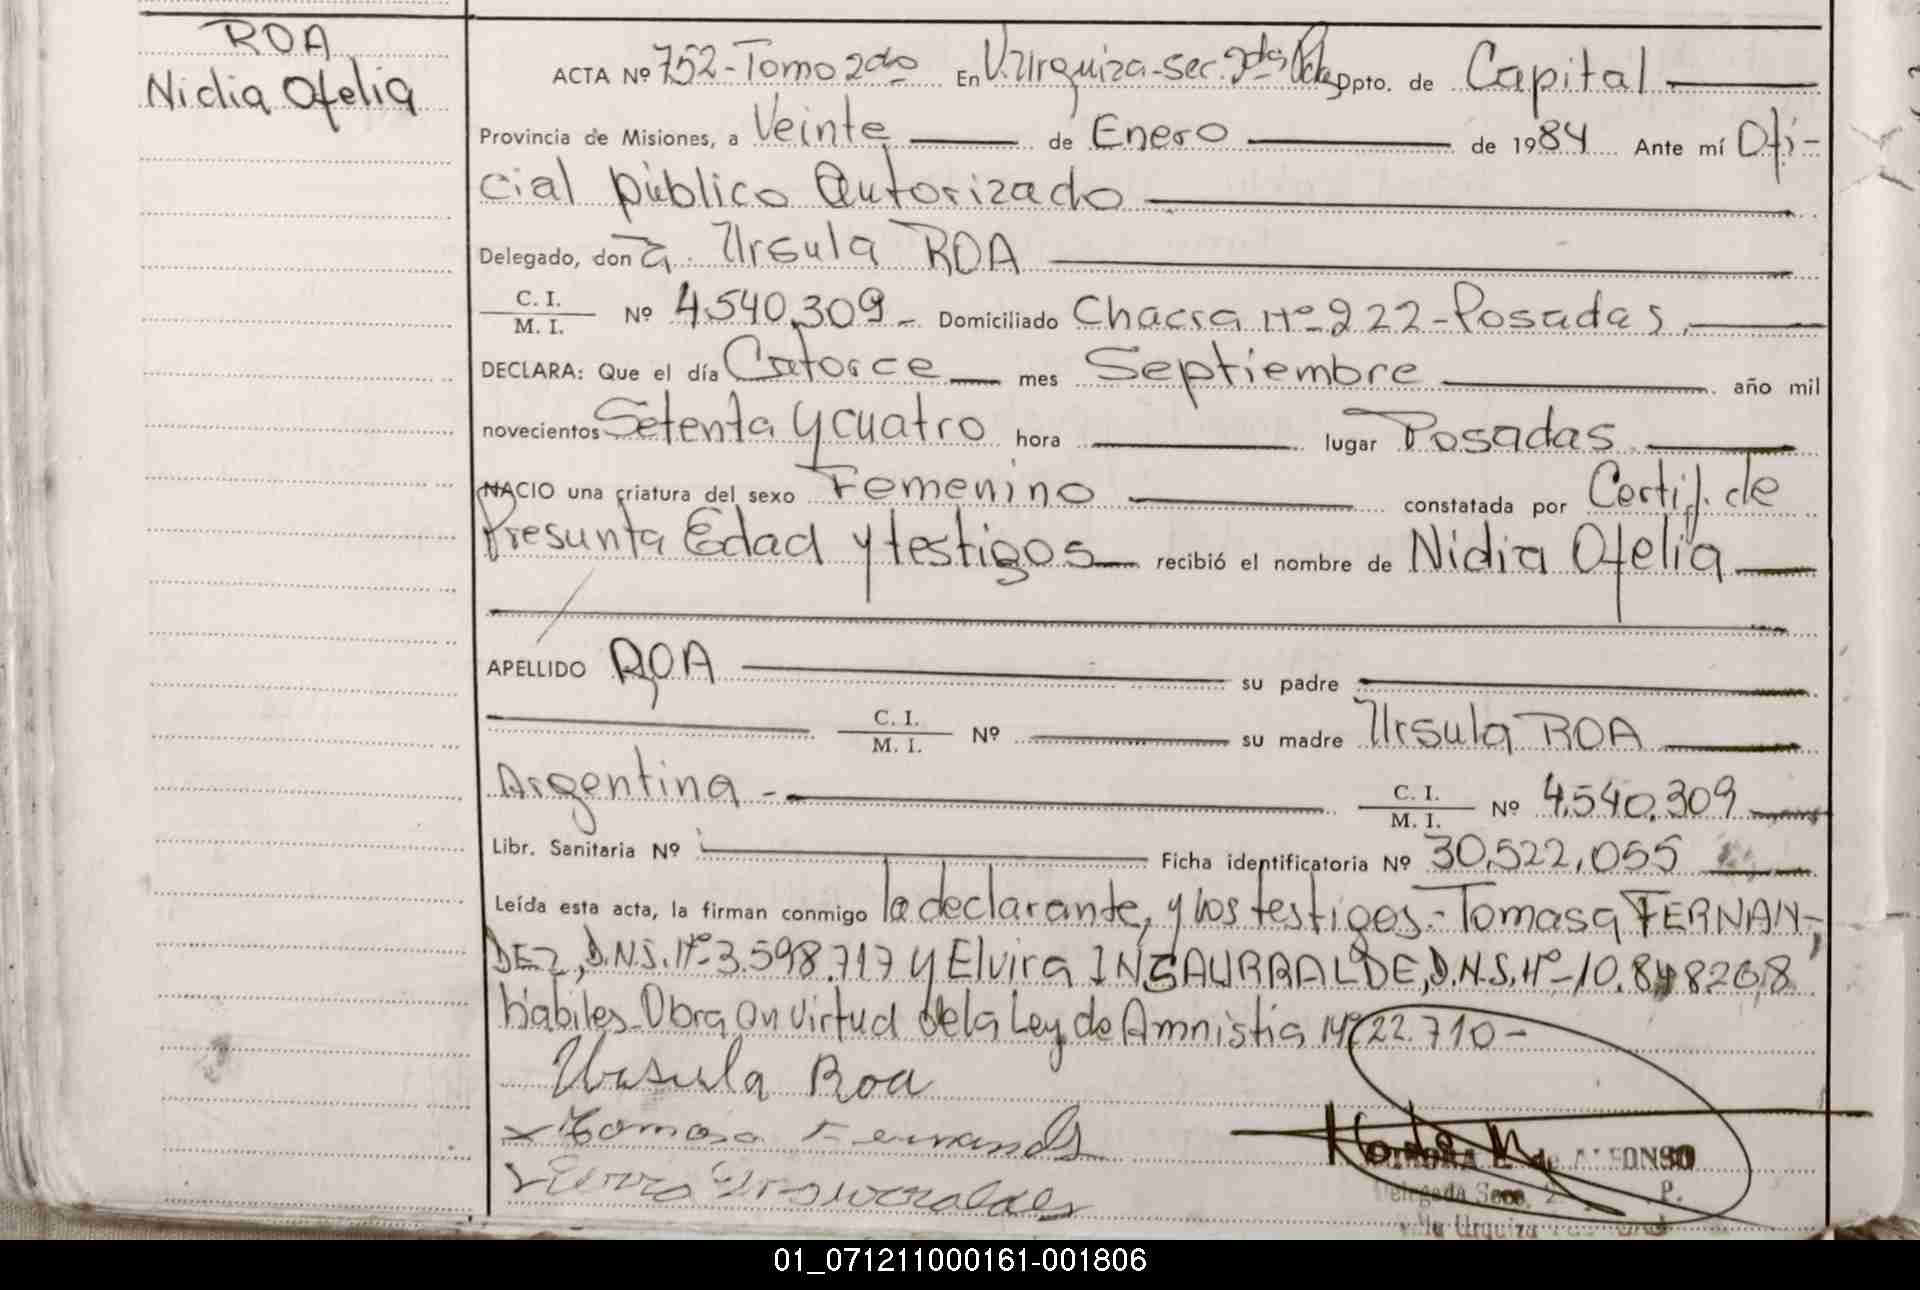 ROA
Nidia Ofelia
ACTA Nº 752-Tomo 2do En V. Urquiza-sec. 2da Pdas Dpto. de Capital
Provincia de Misiones, a Veinte de Enero de 1984 Ante mí Ofi-
cial público Autorizado
Delegado, don ña. Ursula ROA
C. I.
M. I. Nº 4.540.309- Domiciliado Chacra Nº-222-Posadas.
DECLARA: Que el día Catorce mes Septiembre año mil
novecientos Setenta y cuatro hora lugar Posadas
NACIO una criatura del sexo Femenino constatada por Certif. de
Presunta Edad y testigos recibió el nombre de Nidia Ofelia
APELLIDO ROA su padre
C. I.
M. I. Nº su madre Ursula ROA
Argentina-
C. I.
M. I. Nº 4.540.309
Libr. Sanitaria Nº Ficha identificatoria Nº 30.522.055
Leída esta acta, la firman conmigo la declarante, y los testigos.- Tomasa FERNAN-
DEZ, D.N.I. Nº-3.598.717 y Elvira INSAURRALDE, D.N.I. Nº-10.848208
hábiles-Obra en virtud de la Ley de Amnistia Nº 22.710-
Ursula Roa
x Tomasa Fernandes
de ALFONSO
Delegada Secc. 2
Villa Urquiza
01_071211000161-001806